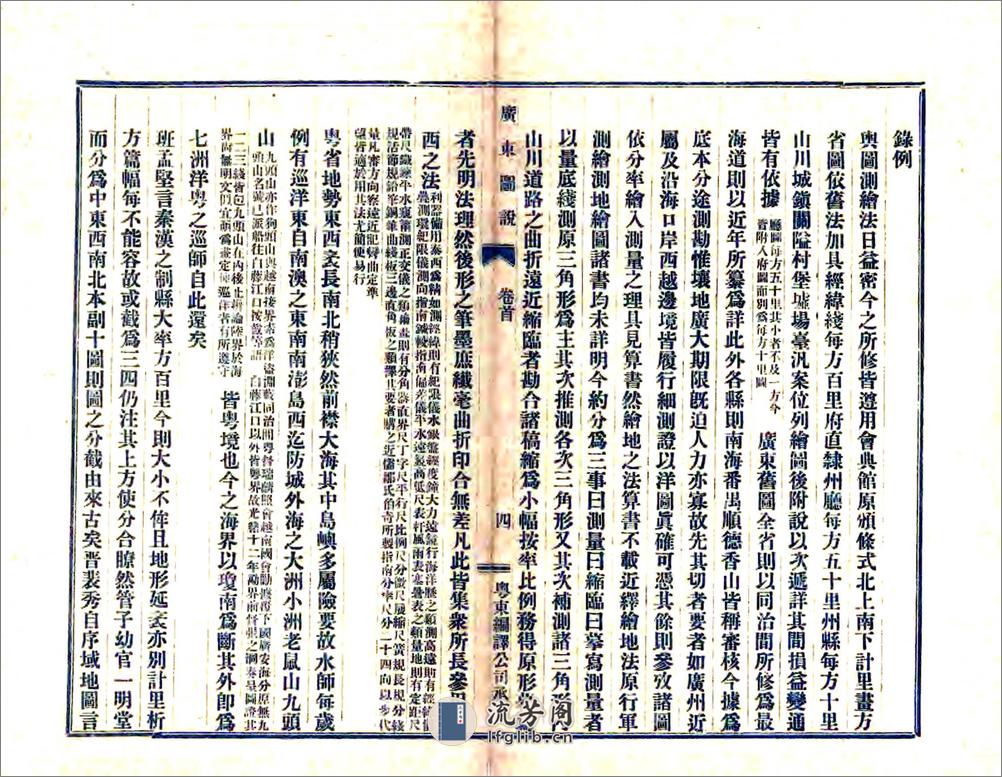 錄例
輿圖測繪法日益密今之所修皆遵用會典館原頒條式北上南下計里畫方
省圖依舊法加具經緯綫每方百里府直隸州廳每方五十里州縣每方十里
山川城鎮關隘村堡墟場臺汛案位列繪圖後附說以次遞詳其間損益變通
皆有依據 廳圖每方五十里其小者不及一方今皆附入府圖而別為每方十里圖 廣東舊圖全省則以同治間所修為最
海道則以近年所纂為詳此外各縣則南海番禺順德香山皆稱審核今據為
底本分途測勘惟壤地廣大期限旣迫人力亦寡故先其切者要者如廣州近
屬及沿海口岸西越邊境皆履行細測證以洋圖眞確可憑其餘則參攷諸圖
依分率繪入測量之理具見算書然繪地之法算書不載近繹繪地法原行軍
測繪測地繪圖諸書均未詳明今約分為三事曰測量曰縮臨曰摹寫測量者
以量底綫測原三角形為主其次推測各次三角形又其次補測諸三角形
山川道路之曲折遠近縮臨者勘合諸稿縮為小幅按率比例務得原形
者先明法理然後形之筆墨庶纖毫曲折印合無差凡此皆集衆所長參
西之法
粵省地勢東西袤長南北稍狹然前襟大海其中島嶼多屬險要故水師每歲
例有巡洋東自南澳之東南南澎島西迄防城外海之大洲小洲老鼠山九頭
山 皆粵境也今之海界以瓊南為斷其外卽為
七洲洋粵之巡師自此還矣
班孟堅言秦漢之制縣大率方百里今則大小不侔且地形延袤亦別計里析
方篇幅每不能容故或截為三四仍注其上方使分合瞭然管子幼官一明堂
而分為中東西南北本副十圖則圖之分截由來古矣晋裴秀自序域地圖言
廣東圖說
卷首
四
粵東編譯公司承
流芳阁
lfglib.cn